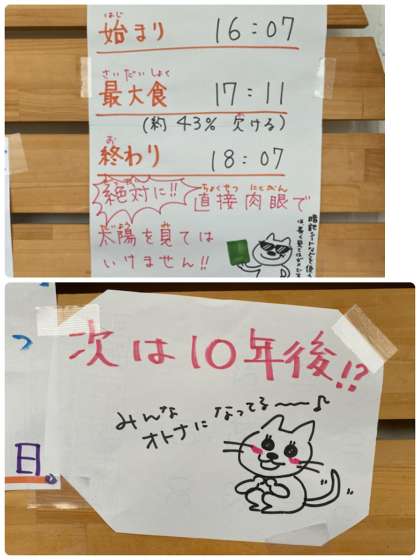 はじ
始まり 16:07
さいだいしょく
最大食 17:11
(約43% 欠ける)
お
終わり 18:07
絶対に!! 直接肉眼で
ちょくせつ にくがん
太陽を見ては
いけません!!
次は10年後!?
みんな
オトナになってる〜〜♪
つ
日。